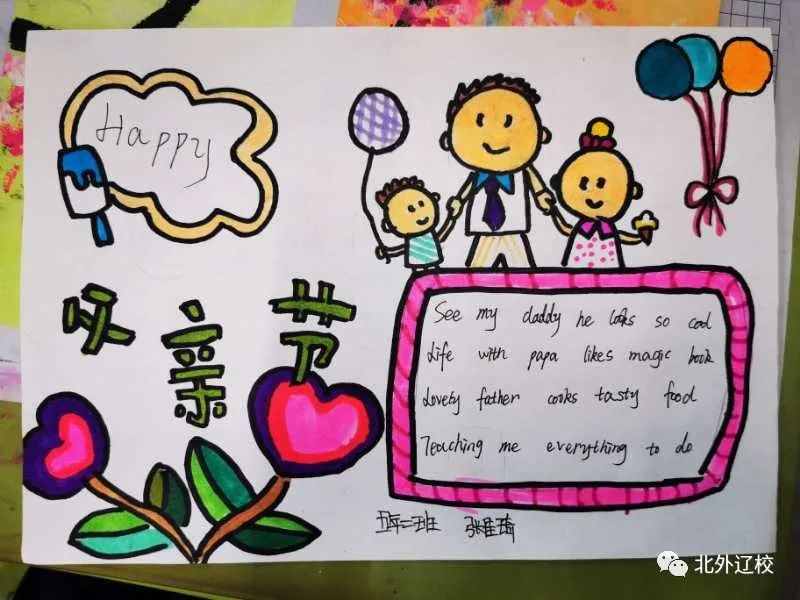 Happy
父亲节
See my daddy he looks so cool
Life with papa likes magic book
Lovely father cooks tasty food
Teaching me everything to do
五年二班 张佳琦
北外辽校